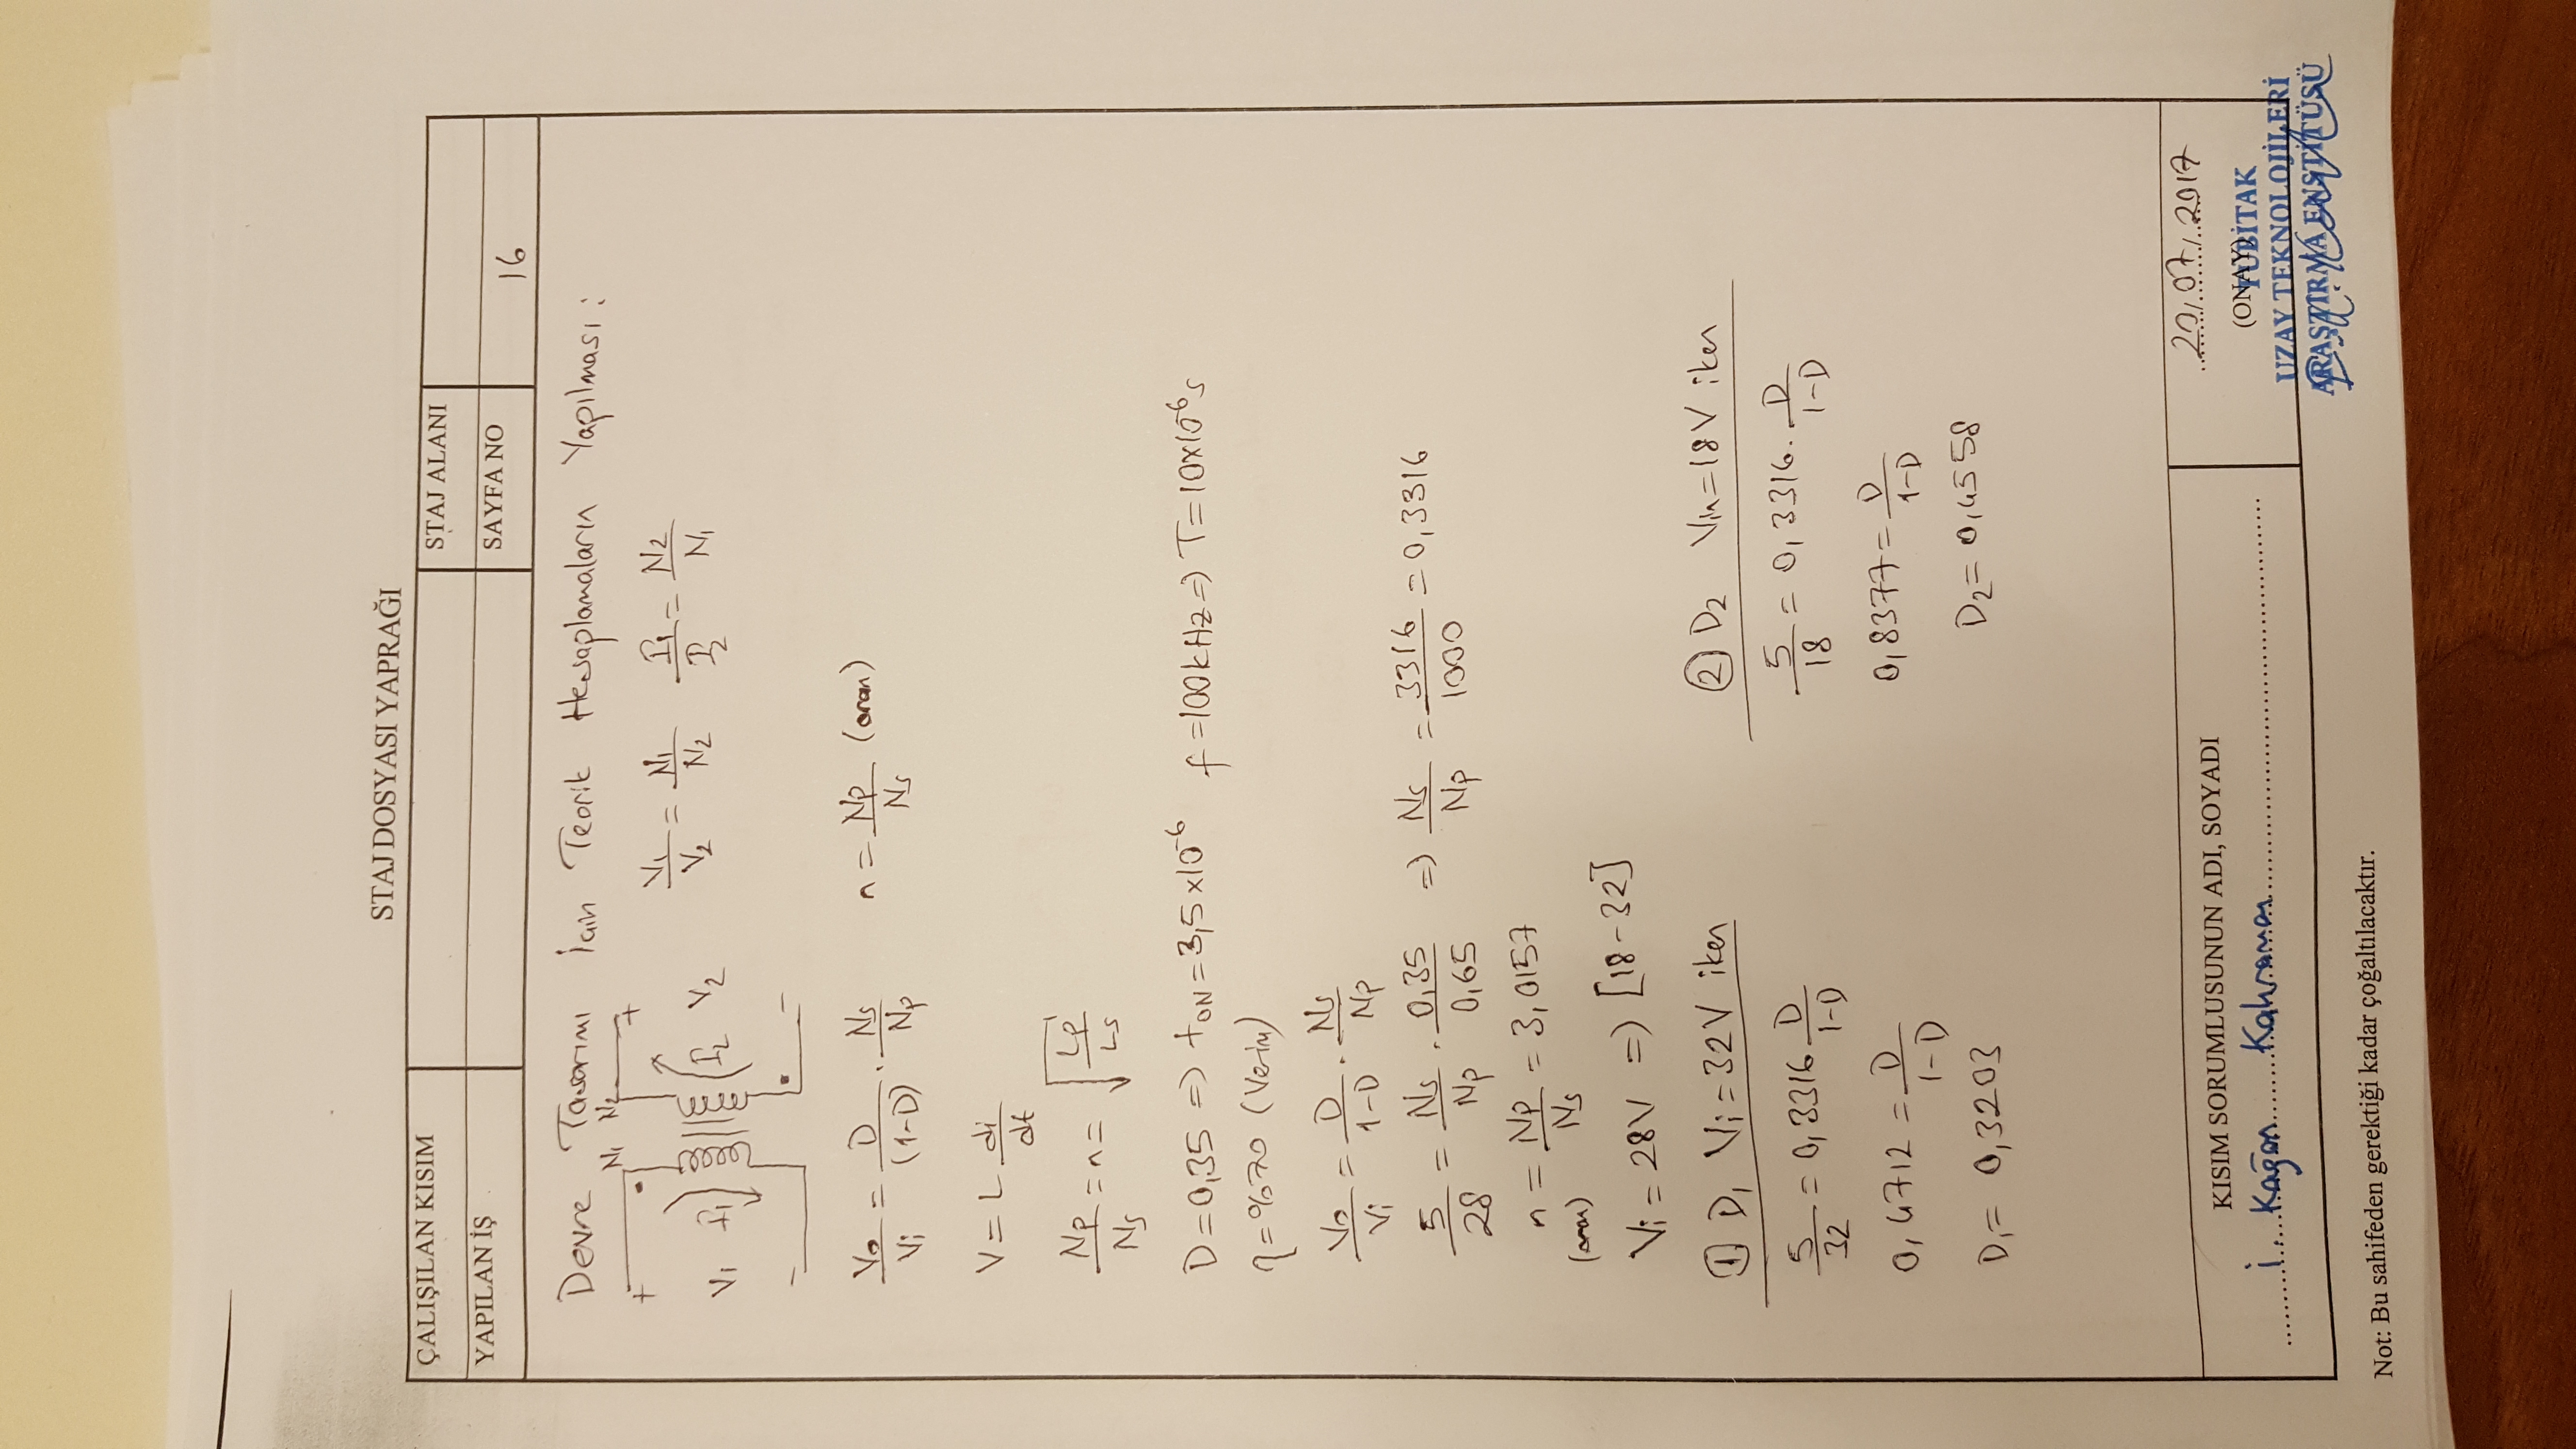 STAJ DOSYASI YAPRAĞI
ÇALIŞILAN KISIM
STAJ ALANI
YAPILAN İŞ
SAYFA NO 16
Devre Tasarımı İçin Teorik Hesaplamaların Yapılması:
N1 N2
+ +
V1 I1 I2 V2
- -
V1/V2 = N1/N2 I1/I2 = N2/N1
Vo/Vi = D/(1-D) . Ns/Np n = Np/Ns (oran)
V = L di/dt
Np/Ns = n = √(Lp/Ls)
D = 0,35 => tON = 3,5x10^-6 f = 100kHz => T = 10x10^-6 s
η = %70 (Verim)
Vo/Vi = D/1-D . Ns/Np
5/28 = Ns/Np . 0,35/0,65 => Ns/Np = 3316/1000 = 0,3316
n = Np/Ns = 3,0157
(oran)
Vi = 28V => [18-32]
① D1 Vi = 32V iken
5/32 = 0,3316 D/1-D
0,4712 = D/1-D
D1 = 0,3203
② D2 Vin = 18V iken
5/18 = 0,3316 . D/1-D
0,8377 = D/1-D
D2 = 0,4558
KISIM SORUMLUSUNUN ADI, SOYADI
İ. Kağan Kahraman
20/07/2017
(ONAY)
TÜBİTAK
UZAY TEKNOLOJİLERİ
ARAŞTIRMA ENSTİTÜSÜ
Not: Bu sahifeden gerektiği kadar çoğaltılacaktır.